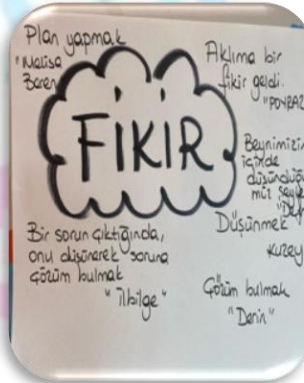 Plan yapmak
"Melisa
Beren
Aklıma bir
fikir geldi.
"POYRAZ
FİKİR
Beynimizin
içinde
düşündüğü
müz şeyle
Düşünmek
Kuzey
Bir sorun çıktığında,
onu düşünerek soruna
çözüm bulmak
"İlbilge"
Çözüm bulmak
"Derin"